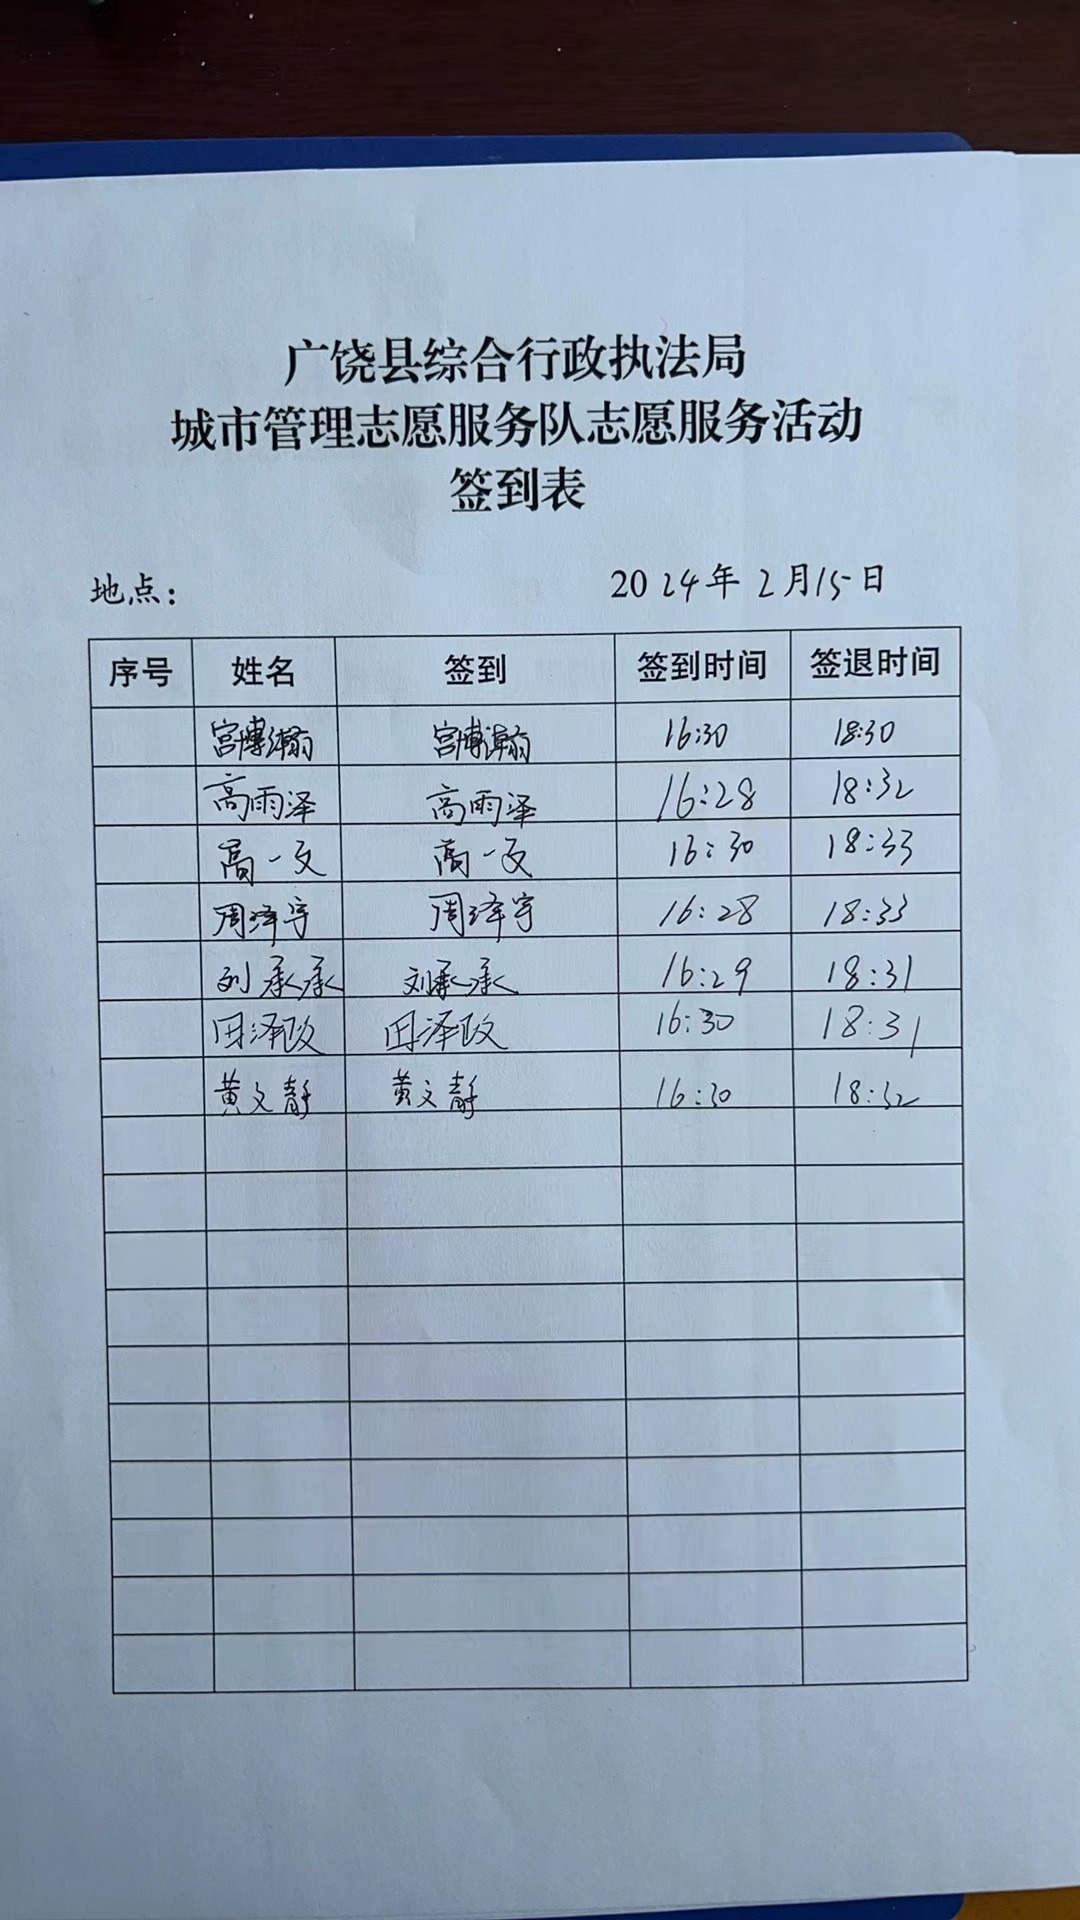 广饶县综合行政执法局
城市管理志愿服务队志愿服务活动
签到表
地点： 2024年2月15日
序号 姓名 签到 签到时间 签退时间
宫博瀚 宫博瀚 16:30 18:30
高雨泽 高雨泽 16:28 18:32
高一文 高一文 16:30 18:33
周泽宇 周泽宇 16:28 18:33
刘承承 刘承承 16:29 18:31
田泽政 田泽政 16:30 18:31
黄文静 黄文静 16:30 18:32